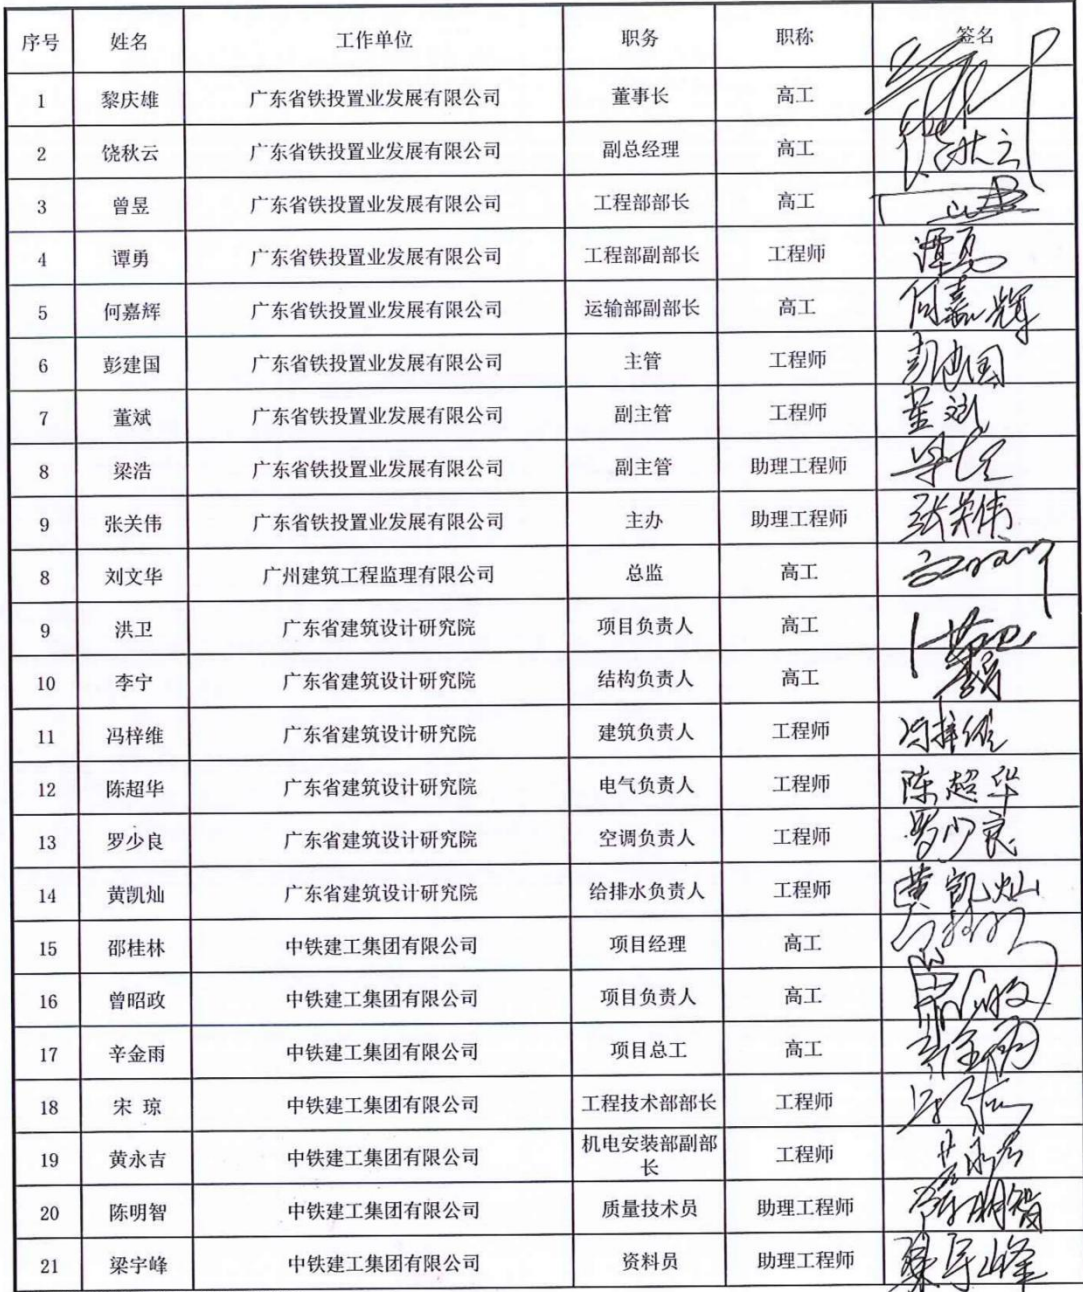 序号 姓名 工作单位 职务 职称 签名
1 黎庆雄 广东省铁投置业发展有限公司 董事长 高工
2 饶秋云 广东省铁投置业发展有限公司 副总经理 高工
3 曾昱 广东省铁投置业发展有限公司 工程部部长 高工
4 谭勇 广东省铁投置业发展有限公司 工程部副部长 工程师 谭勇
5 何嘉辉 广东省铁投置业发展有限公司 运输部副部长 高工 何嘉辉
6 彭建国 广东省铁投置业发展有限公司 主管 工程师 彭建国
7 董斌 广东省铁投置业发展有限公司 副主管 工程师 董斌
8 梁浩 广东省铁投置业发展有限公司 副主管 助理工程师
9 张关伟 广东省铁投置业发展有限公司 主办 助理工程师 张关伟
8 刘文华 广州建筑工程监理有限公司 总监 高工
9 洪卫 广东省建筑设计研究院 项目负责人 高工
10 李宁 广东省建筑设计研究院 结构负责人 高工
11 冯梓维 广东省建筑设计研究院 建筑负责人 工程师 冯梓维
12 陈超华 广东省建筑设计研究院 电气负责人 工程师 陈超华
13 罗少良 广东省建筑设计研究院 空调负责人 工程师 罗少良
14 黄凯灿 广东省建筑设计研究院 给排水负责人 工程师 黄凯灿
15 邵桂林 中铁建工集团有限公司 项目经理 高工
16 曾昭政 中铁建工集团有限公司 项目负责人 高工
17 辛金雨 中铁建工集团有限公司 项目总工 高工
18 宋 琼 中铁建工集团有限公司 工程技术部部长 工程师
19 黄永吉 中铁建工集团有限公司 机电安装部副部长 工程师 黄永吉
20 陈明智 中铁建工集团有限公司 质量技术员 助理工程师 陈明智
21 梁宇峰 中铁建工集团有限公司 资料员 助理工程师 梁宇峰